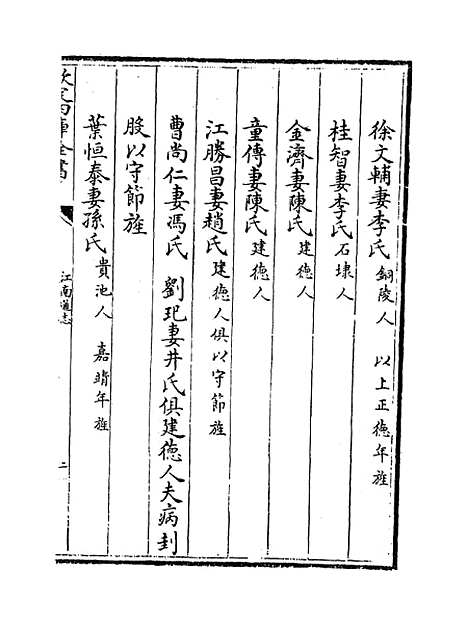 徐文輔妻李氏銅陵人 以上正德年旌
桂智妻李氏石埭人
金濟妻陳氏建德人
童傳妻陳氏建德人
江勝昌妻趙氏建德人俱以守節旌
曹尚仁妻馮氏 劉玘妻井氏俱建德人夫病刲
股以守節旌
葉恒泰妻孫氏貴池人 嘉靖年旌
欽定四庫全書 江南通志 二